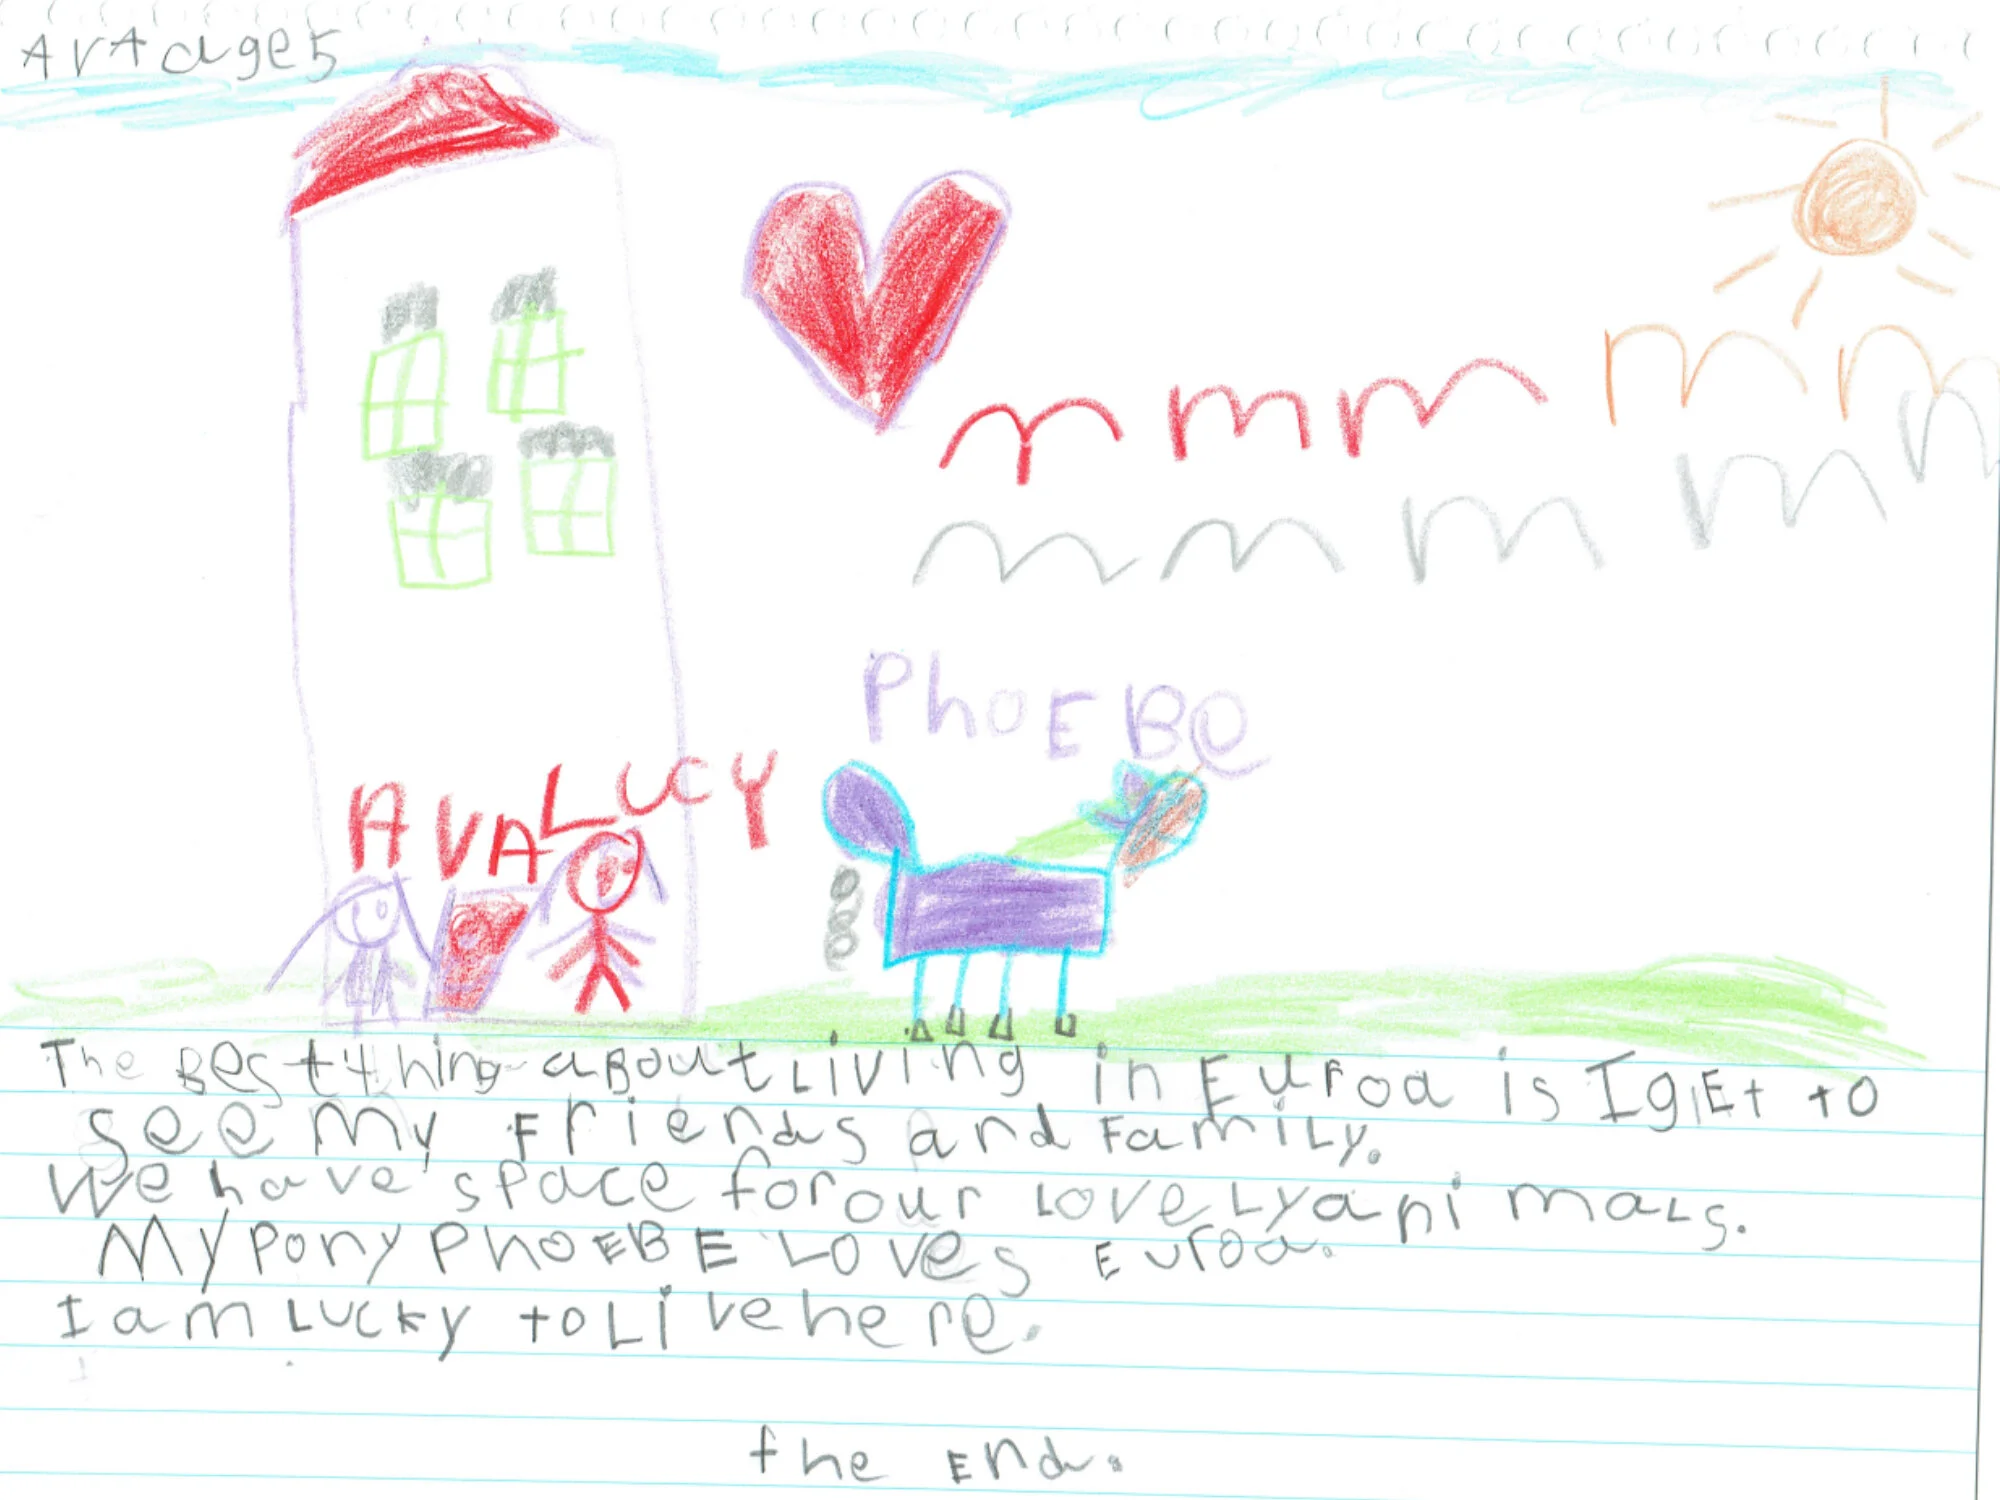 Ava age 5
PhoEBe
AVA LUCY
The Best thing aBout Living in Euroa is I gEt to
see my Friends and Family.
We have space for our LoveLy animaLs.
My pony PhoEBE Loves Euroa.
I am Lucky to Live here.
the End.